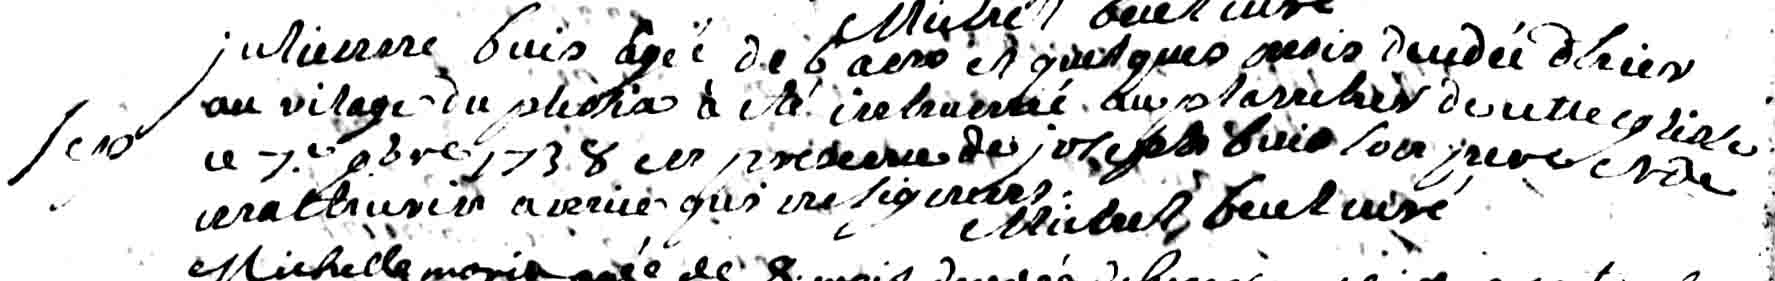 Michel buet curé
julienne buis agée de 6 ans et quelques mois deudée dhier
au vilage du plessix à été inhumé au placitre de cette eglise
ce 7.e 9bre 1738 en presence de joseph buis son pere et de
mathurin qui ne signent.
Michel buet curé
Michelle marie agée de 8 mois